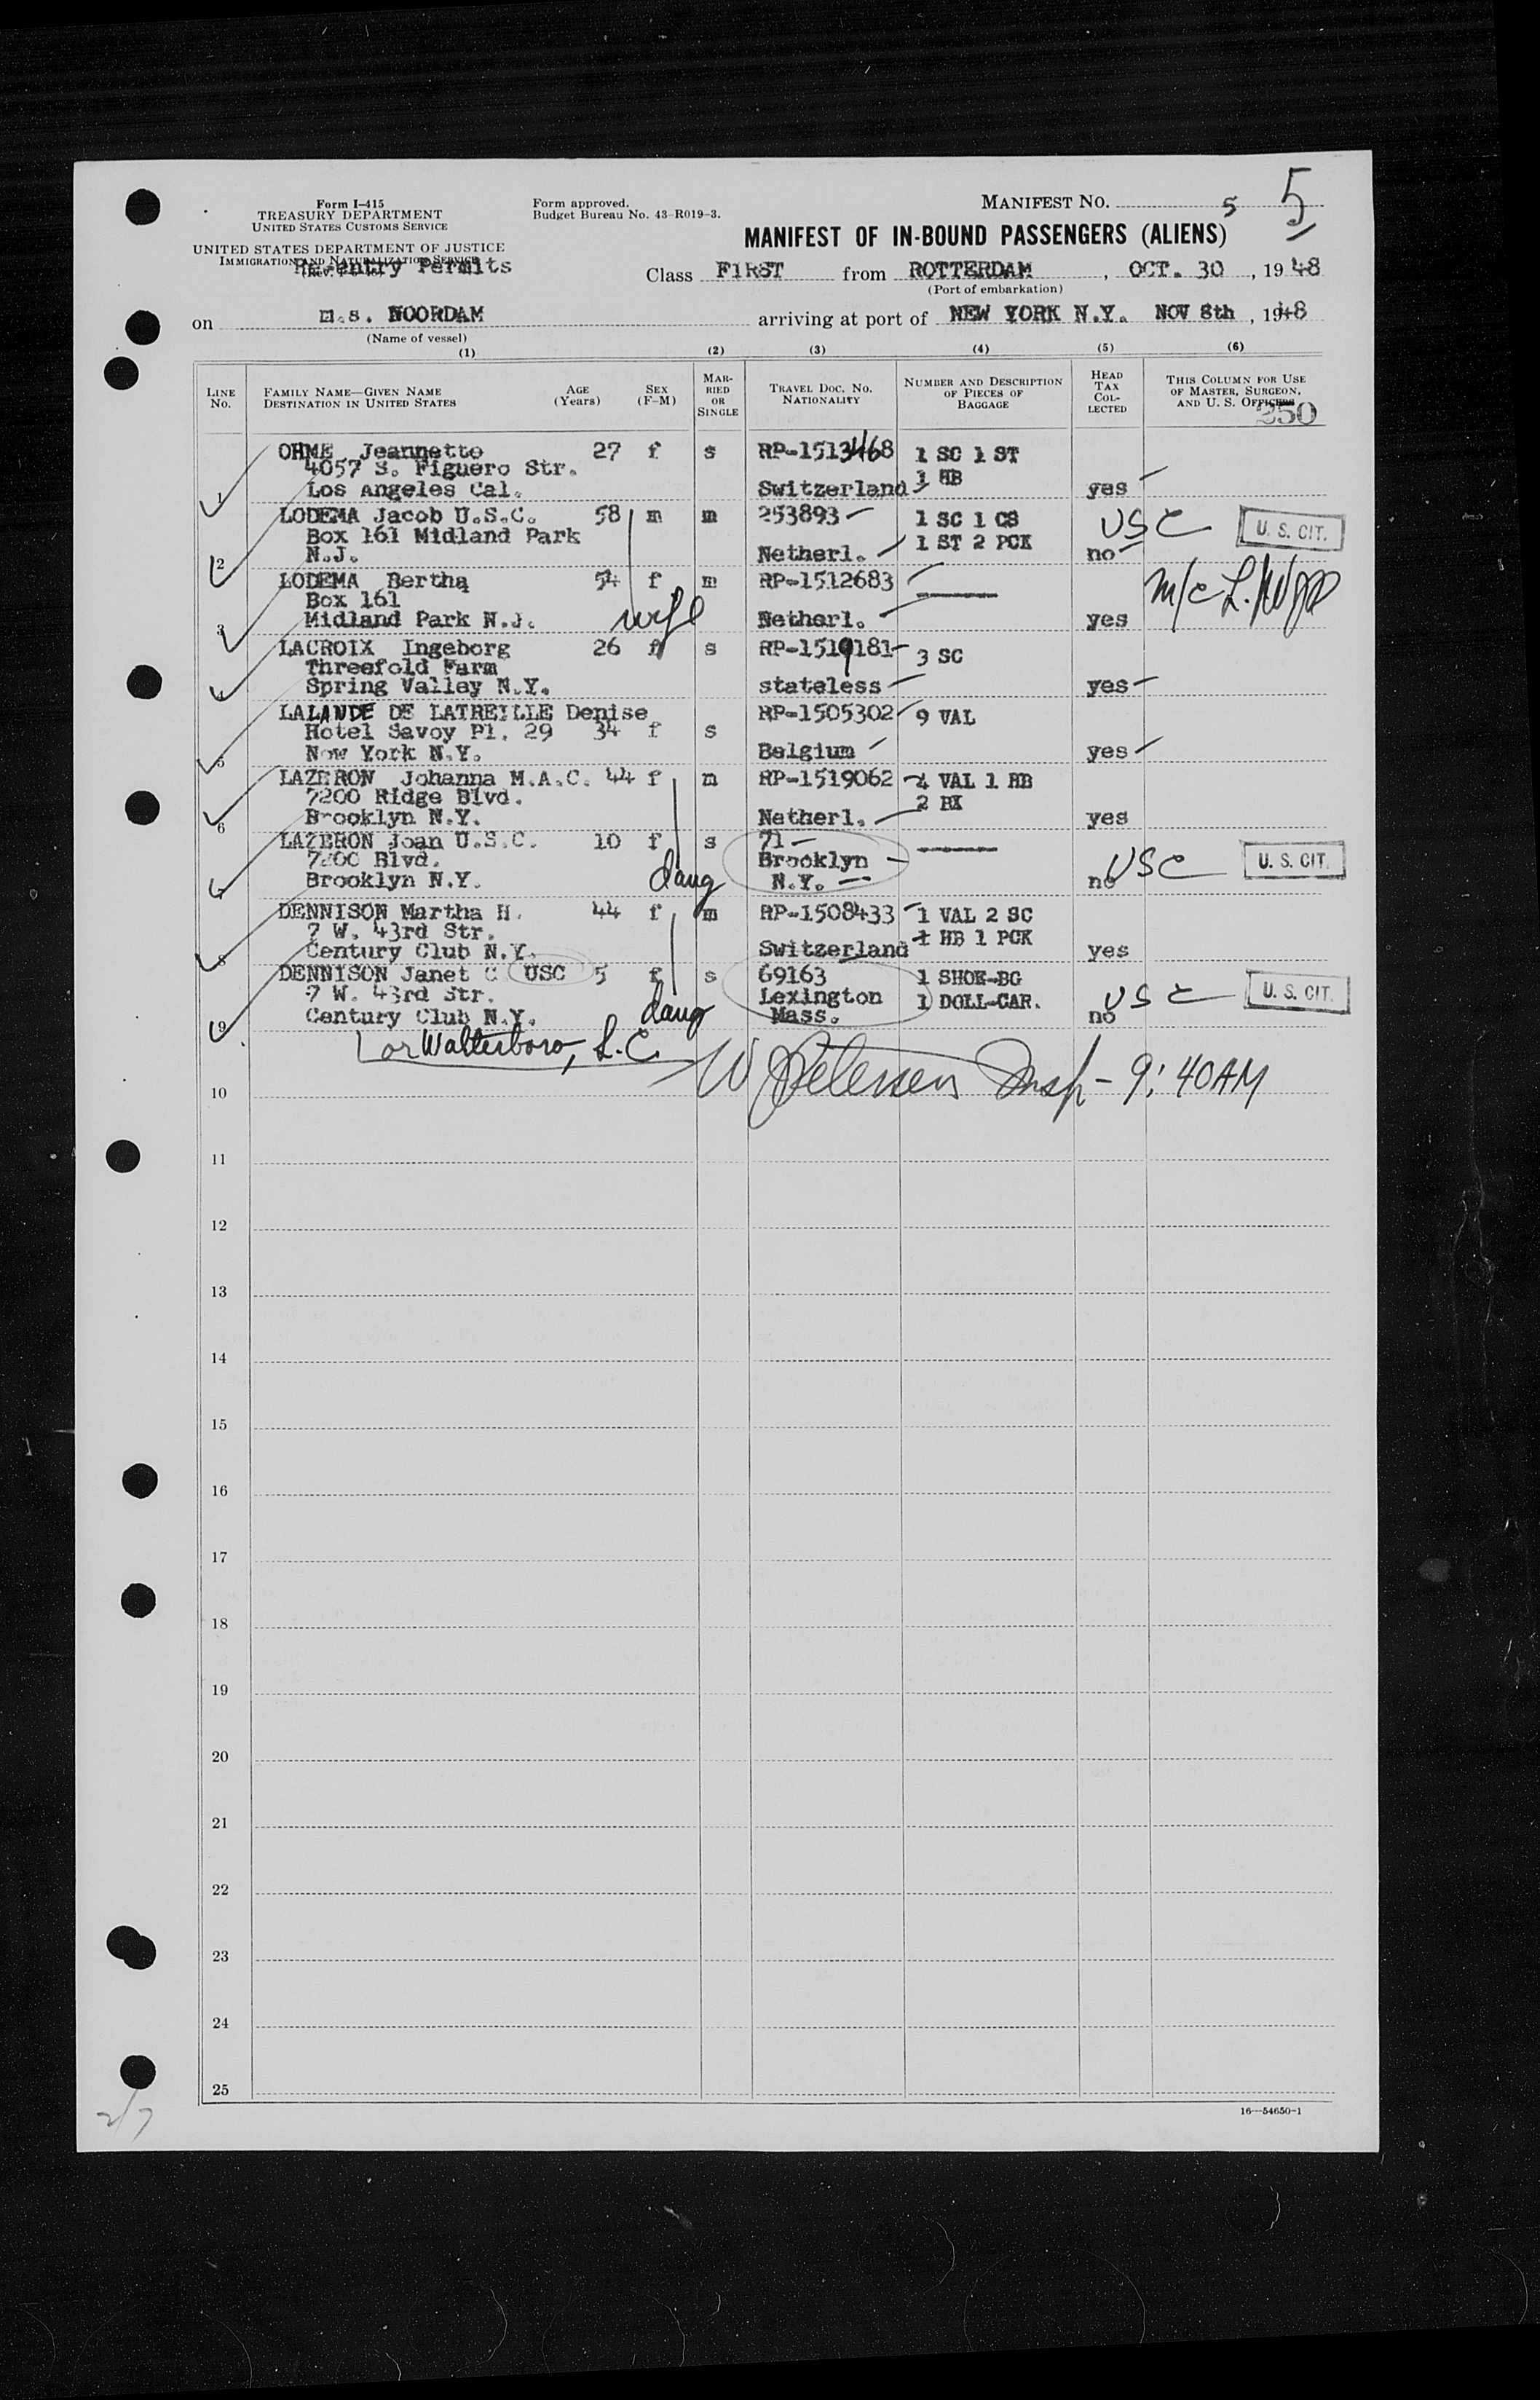 Form I-415
TREASURY DEPARTMENT
UNITED STATES CUSTOMS SERVICE
UNITED STATES DEPARTMENT OF JUSTICE
IMMIGRATION AND NATURALIZATION SERVICE
Re-entry Permits
Form approved.
Budget Bureau No. 43-R019-3.
MANIFEST NO. 5 5
MANIFEST OF IN-BOUND PASSENGERS (ALIENS)
Class FIRST from ROTTERDAM, OCT. 30, 1948
(Port of embarkation)
on m.s. NOORDAM arriving at port of NEW YORK N.Y. NOV 8th, 1948
(Name of vessel)
(1) (2) (3) (4) (5) (6)
LINE NO.
FAMILY NAME—GIVEN NAME
DESTINATION IN UNITED STATES
AGE (Years)
SEX (F-M)
MARRIED OR SINGLE
TRAVEL DOC. NO.
NATIONALITY
NUMBER AND DESCRIPTION OF PIECES OF BAGGAGE
HEAD TAX COLLECTED
THIS COLUMN FOR USE OF MASTER, SURGEON, AND U. S. OFFICERS
350
OHME Jeannette 27 f s RP-1513468 1 SC 1 ST
4057 S. Figuero Str. 1 HB
1 Los Angeles Cal. Switzerland yes
LODEMA Jacob U.S.C. 58 m m 253893 1 SC 1 CS USC U. S. CIT.
Box 161 Midland Park 1 ST 2 PCK
2 N.J. Netherl. no
LODEMA Bertha 54 f m RP-1512683
Box 161
3 Midland Park N.J. wife Netherl. yes
LACROIX Ingeborg 26 f s RP-1519181 3 SC
Threefold Farm
4 Spring Valley N.Y. stateless yes
LALANDE DE LATREILLE Denise RP-1505302 9 VAL
Hotel Savoy Pl. 29 34 f s
5 New York N.Y. Belgium yes
LAZERON Johanna M.A.C. 44 f m RP-1519062 4 VAL 1 HB
7200 Ridge Blvd. 2 BX
6 Brooklyn N.Y. Netherl. yes
LAZERON Joan U.S.C. 10 f s 71
7200 Blvd. Brooklyn
7 Brooklyn N.Y. daug N.Y. no USC U. S. CIT.
DENNISON Martha H. 44 f m RP-1508433 1 VAL 2 SC
7 W. 43rd Str. 1 HB 1 PCK
8 Century Club N.Y. Switzerland yes
DENNISON Janet C USC 5 f s 69163 1 SHOE-BG
7 W. 43rd Str. Lexington 1 DOLL-CAR.
9 Century Club N.Y. daug Mass. no USC U. S. CIT.
or Walterboro, S.C.
10 W Petersen Insp - 9:40AM
11
12
13
14
15
16
17
18
19
20
21
22
23
24
25
16—54650-1
2/7